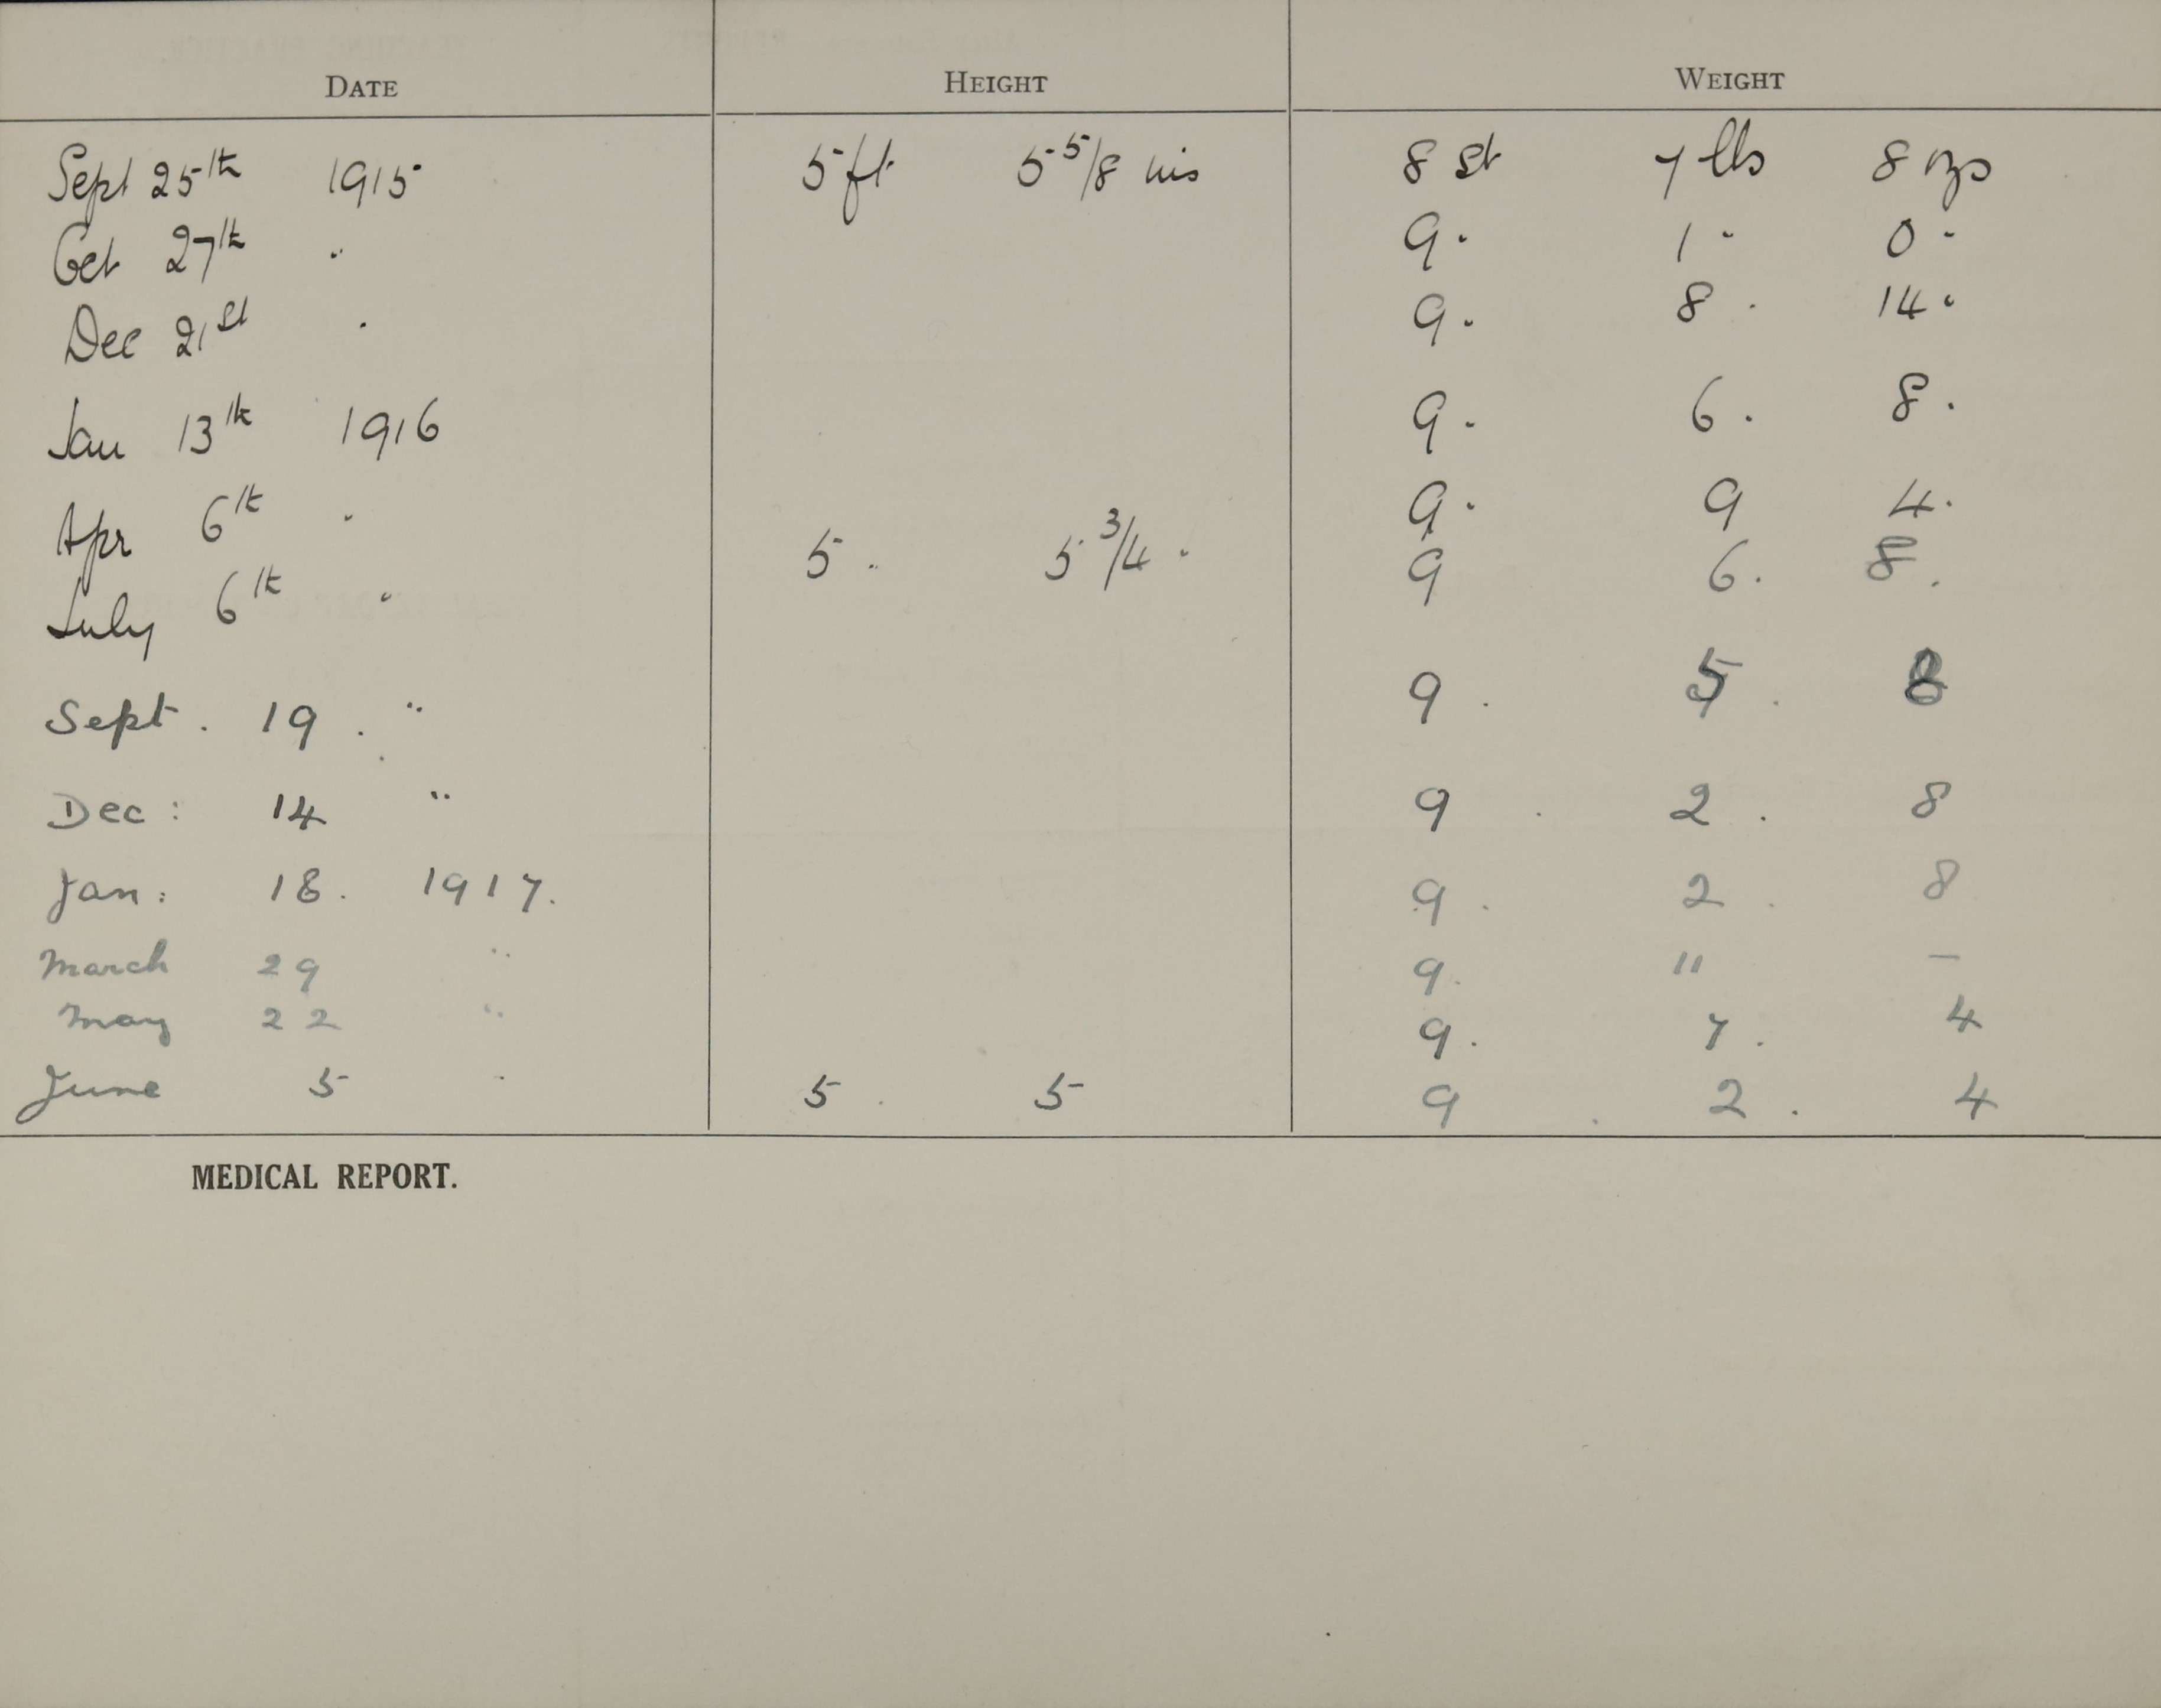 DATE HEIGHT WEIGHT
Sept 25th 1915 5 ft 5 5/8 ins 8 st 7 lbs 8 ozs
Oct 27th " 9 " 1 " 0 "
Dec 21st " 9 " 8 " 14 "
Jan 13th 1916 9 " 6 " 8 "
Apr 6th " 9 " 9 4 "
July 6th " 5 " 5 3/4 " 9 6 . 8 .
Sept . 19 . " 9 . 5 .
Dec : 14 " 9 . 2 . 8
Jan : 18 . 1917 . 9 . 2 . 8
March 29 " 9 . 11 —
May 22 " 9 . 7 . 4
June 5 " 5 . 5 9 . 2 . 4
MEDICAL REPORT.